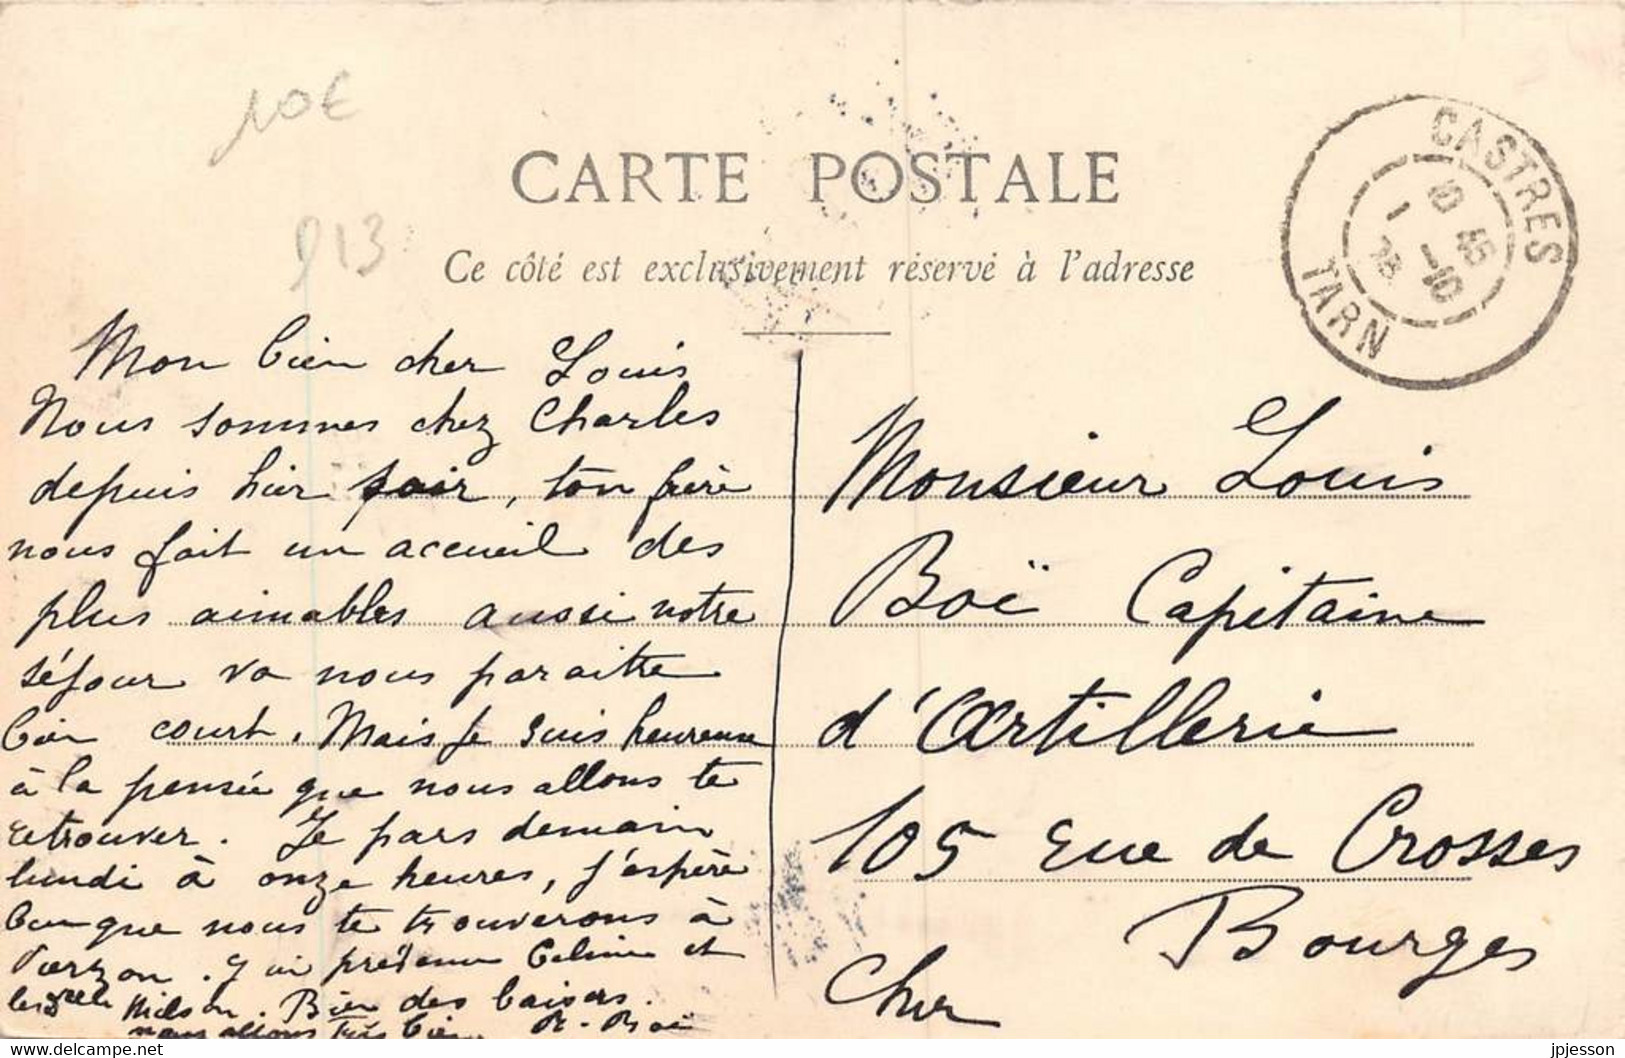 10€
CARTE POSTALE
913
Ce côté est exclusivement réservé à l'adresse
CASTRES
TARN
10 45
1 -10
Mon bien cher Louis
Nous sommes chez Charles
depuis hier soir, ton frère
nous fait un accueil des
plus aimables aussi notre
séjour va nous paraitre
bien court. Mais je suis heureuse
à la pensée que nous allons te
retrouver. Je pars demain
lundi à onze heures, j'espère
bien que nous te trouverons à
Vierzon. J'ai prévenu Céline et
les Delles Nilson. Bien des baisers.
nous allons très bien. R. Boë
Monsieur Louis
Boë Capitaine
d'Artillerie
105 Rue de Crosses
Bourges
Cher
jpjesson